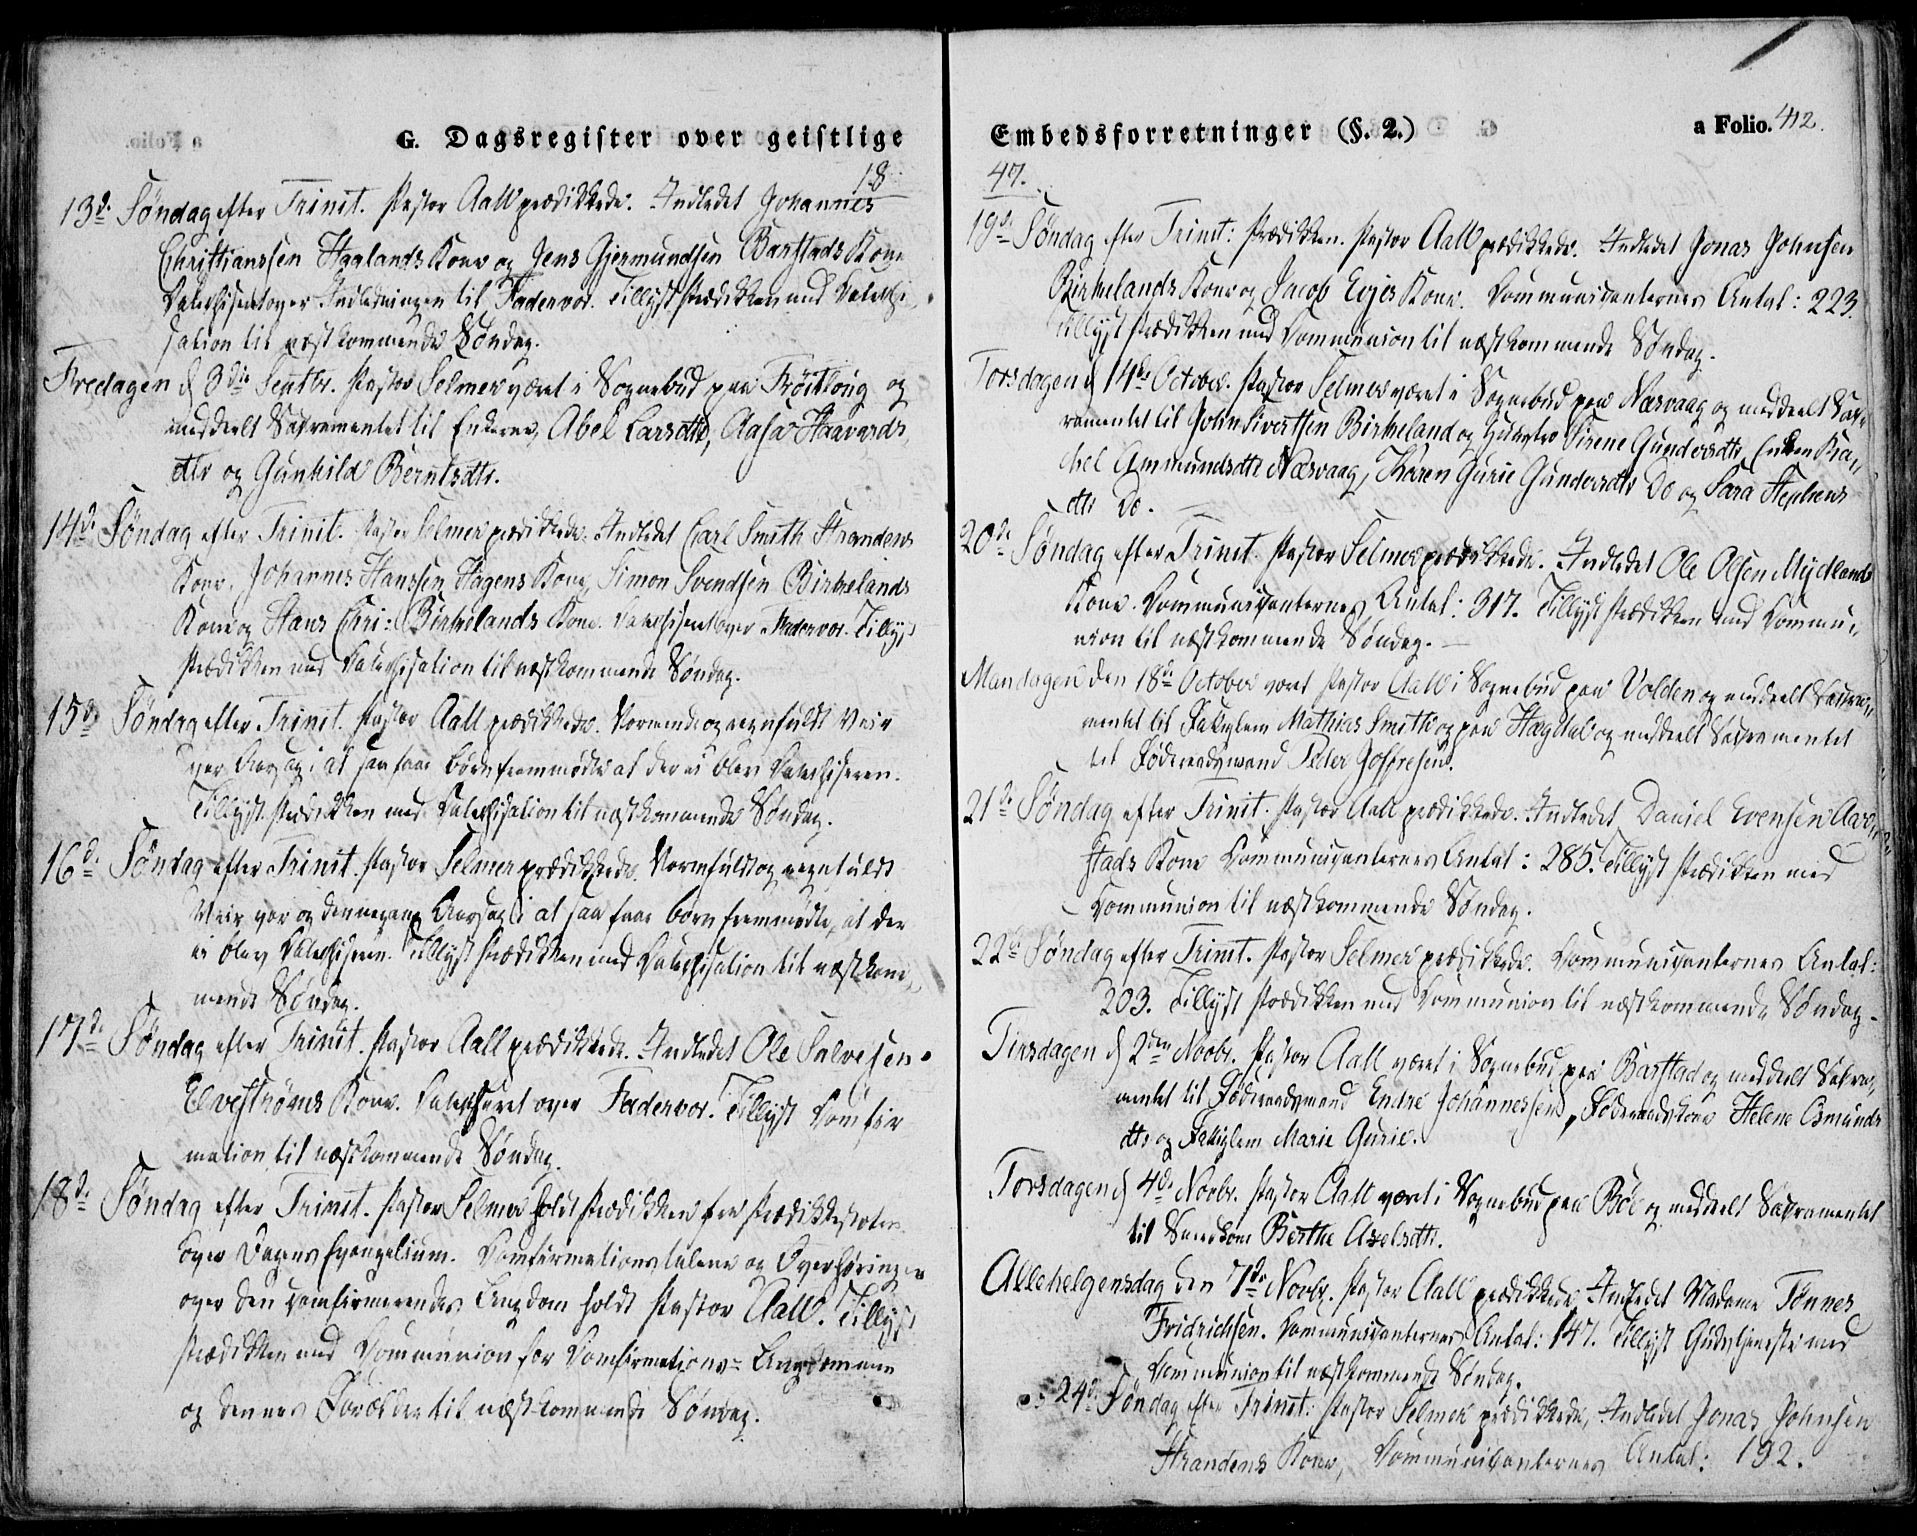 G. Dagsregister over geistlige
18
13d. Søndag efter Trinit. Pastor Aall prædikkede. Indledet Johannes
Christianssen Haalands Kone og Jens Gjermundsen Barstads Kone
Catechiseret over Indledningen til Fadervor. Tillyst Prædikken med Catechi„
sation til næstkommende Søndag.
Fredagen d 3die Septbr. Pastor Selmer været i Sognebud paa Frøitlong og
meddeelt Sakramentet til Enkerne, Abel Larsdtr, Aasa Haavards„
dtr og Gunhild Berntsdtr.
14d. Søndag efter Trinit. Pastor Selmer prædikkede. Indledet Carl Smith Strandens
Kone, Johannes Hanssen Hagens Kone, Simon Svendsen Birkelands
Kone og Hans Chri: Birkelands Kone. Catechiseret over Fadervor. Tillyst
Prædikken med Catechisation til næstkommende Søndag.
15d. Søndag efter Trinit. Pastor Aall prædikkede. og regnfuldt Veir
var Aarsag i at saa faae Børn fremmødte at der ei blev Catechiseren.
Tillyst Prædikken med Catechisation til næstkommende Søndag.
16d. Søndag efter Trinit. Pastor Selmer prædikkede. Stormfuldt og regnfuldt
Veir var og dennegang Aarsag i at saa faae børn fremmødte, at der
ei blev Catechiseren. Tillyst Prædikken med Catechisation til næstkom„
mende Søndag.
17d. Søndag efter Trinit. Pastor Aall prædikkede. Indledet Ole Salvesen
Elvestrøms Kone. Catechiseret over Fadervor. Tillyst Confir
mation til næstkommende Søndag.
18d. Søndag efter Trinit. Pastor Selmer holdt Prædikken fra Prædikkestolen
over Dagens Evangelium. Confirmationstalene og Overhøringen
over den confirmerende Ungdom holdt Pastor Aall. Tillyst
Prædikken med Communion for Confirmations-Ungdommen
og dennes Forældre til næstkommende Søndag.
Embedsforretninger (§. 2.)
a Folio. 412.
47.
19d. Søndag efter Trinit: Prædikken. Pastor Aall prædikkede. Indledet Jonas Johnsen
Birkelands Kone og Jacob Eyes Kone. Communicanternes Antal: 223.
Tillyst Prædikken med Communion til næstkommende Søndag.
Torsdagen d 14de October. Pastor Selmer været i Sognebud paa Næsvaag og meddeelt Sak„
ramentet til John Sivertsen Birkeland og Hustro Sirene Gundersdtr, Enken Ra„
chel Ammundsdtr Næsvaag, Karen Gurie Gundersdtr Do og Sara Stephens
dtr Do.
20d. Søndag efter Trinit. Pastor Selmer prædikkede. Indledet Ole Olsen Mydlands
Kone. Communicanternes Antal: 317. Tillyst Prædikken med Commu„
nion til næstkommende Søndag.
Mandagen den 18de October været Pastor Aall i Sognebud paa Volden og meddeelt Sakra„
mentet til Fattiglem Mathias Smith og paa Hægdal og meddeelt Sakramentet
til Føderaadsmand Peder Josefsen.
21d. Søndag efter Trinit. Pastor Aall prædikkede. Indledet Daniel Evensen Aar„
stads Kone Communicanternes Antal: 285. Tillyst Prædikken med
Communion til næstkommende Søndag.
22d. Søndag efter Trinit. Pastor Selmer prædikkede. Communicanternes Antal:
203. Tillyst Prædikken med Communion til næstkommende Søndag.
Tirsdagen d 2den Novbr. Pastor Aall været i Sognebud paa Barstad og meddeelt Sakra„
mentet til Føderaadsmand Endre Johannessen, Føderaadskone Helene Osmunds
dtr og Fattiglem Marie Gurie.
Torsdagen d 4de Novbr. Pastor Aall været i Sognebud paa Bøe og meddeelt Sakramentet
til Berthe Axelsdtr.
Allehelgensdag den 7de Novbr. Pastor Aall prædikkede. Indledet Madame Tønnes
Fridrichsen. Communicanternes Antal: 147. Tillyst Gudstjeneste med
Communion til næstkommende Søndag.
24d. Søndag efter Trinit: Pastor Selmer prædikkede, Indledet Jonas Johnsen
Strandens Kone, Communicanternes Antal: 192.